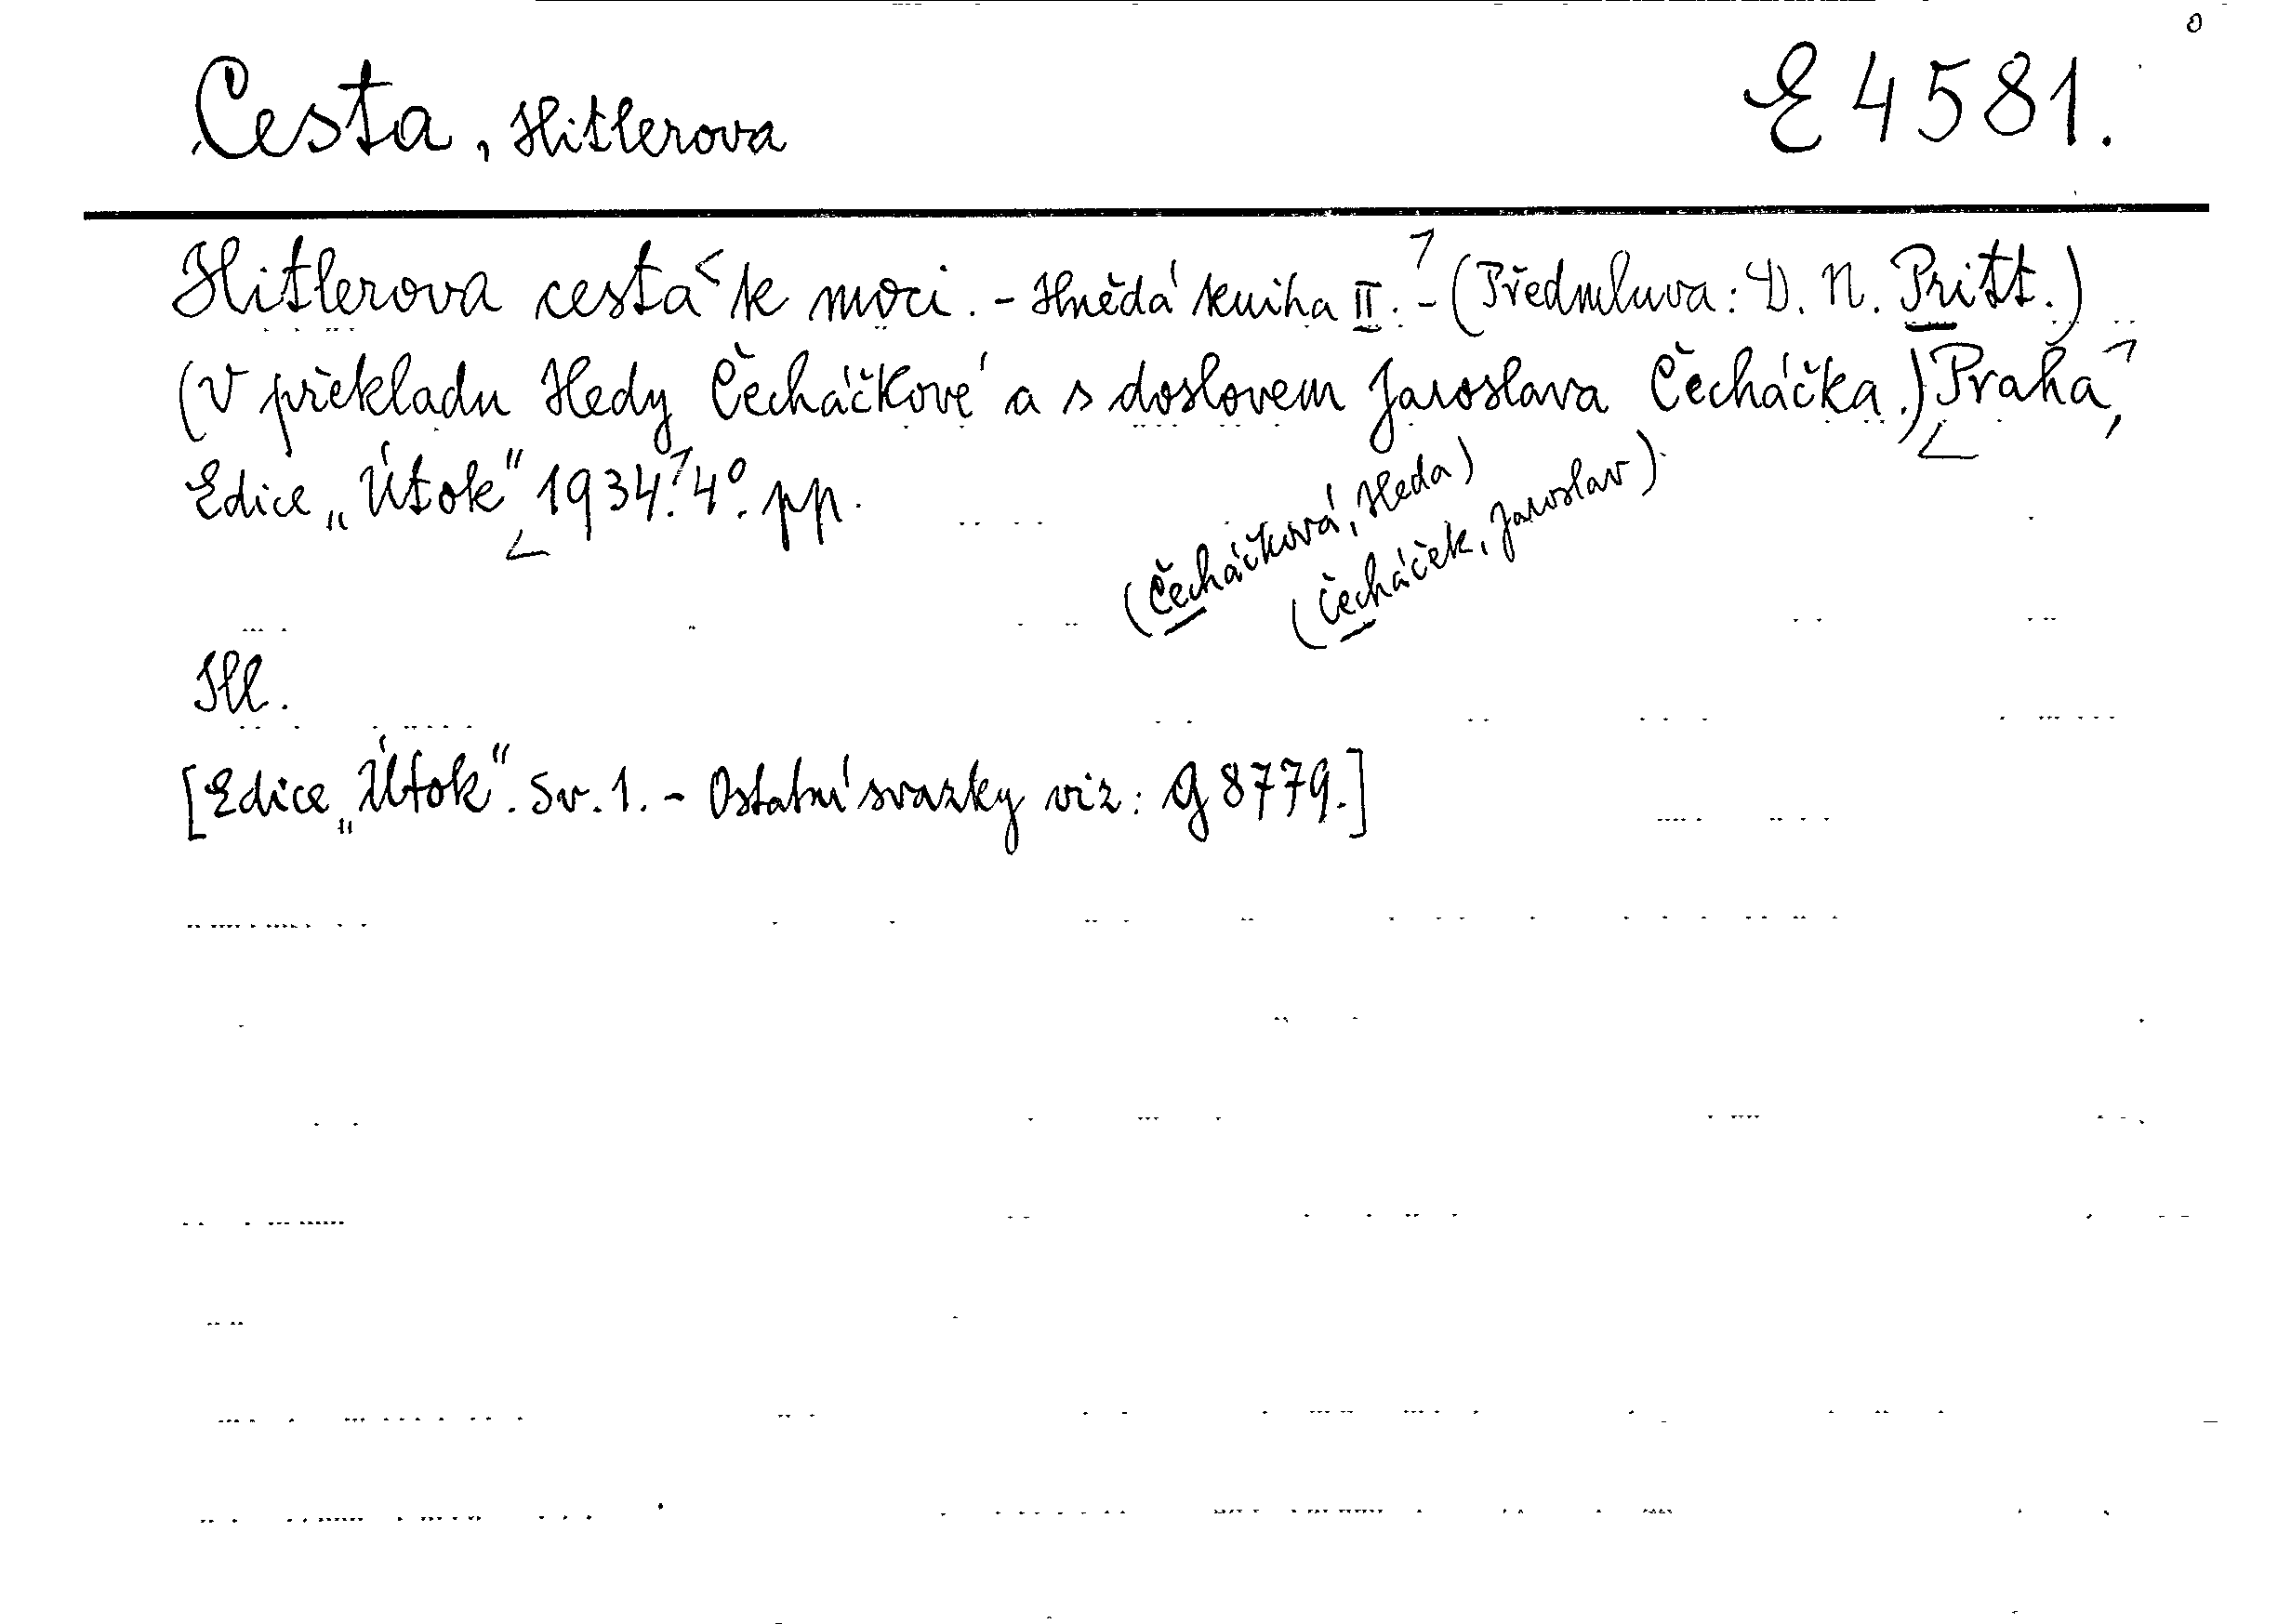 Cesta, Hitlerova E 4581.
Hitlerova cesta k moci. - Hnědá kniha II. - (Předmluva: D. N. Pritt.)
(V překladu Hedy Čecháčkové a s doslovem Jaroslava Čecháčka.) Praha,
Edice „Útok" 1934. 4°. pp.
(Čecháčková, Heda)
(Čecháček, Jaroslav)
Ill.
[Edice „Útok". Sv. 1. - Ostatní svazky viz: G 8779.]